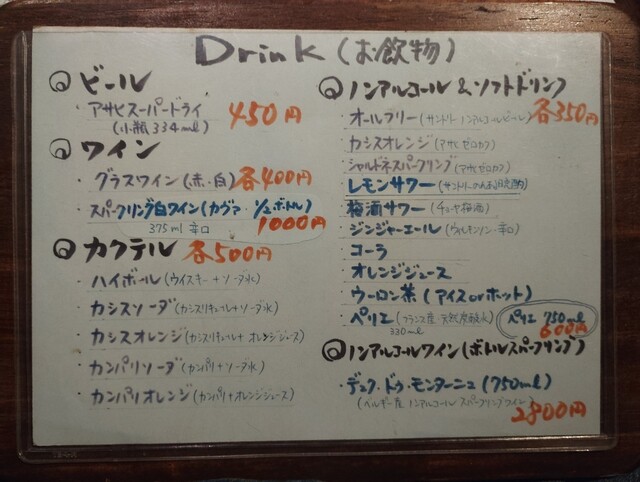 Drink (お飲物)
◎ビール
・アサヒスーパードライ 450円
(小瓶 334ml)
◎ワイン
・グラスワイン(赤・白) 各400円
・スパークリング白ワイン(カヴァ・1/2ボトル)
375ml 辛口 1000円
◎カクテル 各500円
・ハイボール(ウイスキー+ソーダ水)
・カシスソーダ(カシスリキュール+ソーダ水)
・カシスオレンジ(カシスリキュール+オレンジジュース)
・カンパリソーダ(カンパリ+ソーダ水)
・カンパリオレンジ(カンパリ+オレンジジュース)
◎ノンアルコール&ソフトドリンク
・オールフリー(サントリーノンアルコールビール) 各350円
・カシスオレンジ(アサヒゼロカク)
・シャルドネスパークリング(アサヒゼロカク)
・レモンサワー(サントリーのんある晩酌)
・梅酒サワー(チョーヤ梅酒)
・ジンジャーエール(ウィルキンソン・辛口)
・コーラ
・オレンジジュース
・ウーロン茶(アイスorホット)
・ペリエ(フランス産・天然炭酸水) ペリエ 750ml
330ml 600円
◎ノンアルコールワイン(ボトルスパークリング)
・デュク・ドゥ・モンターニュ(750ml)
(ベルギー産ノンアルコールスパークリングワイン)
2800円